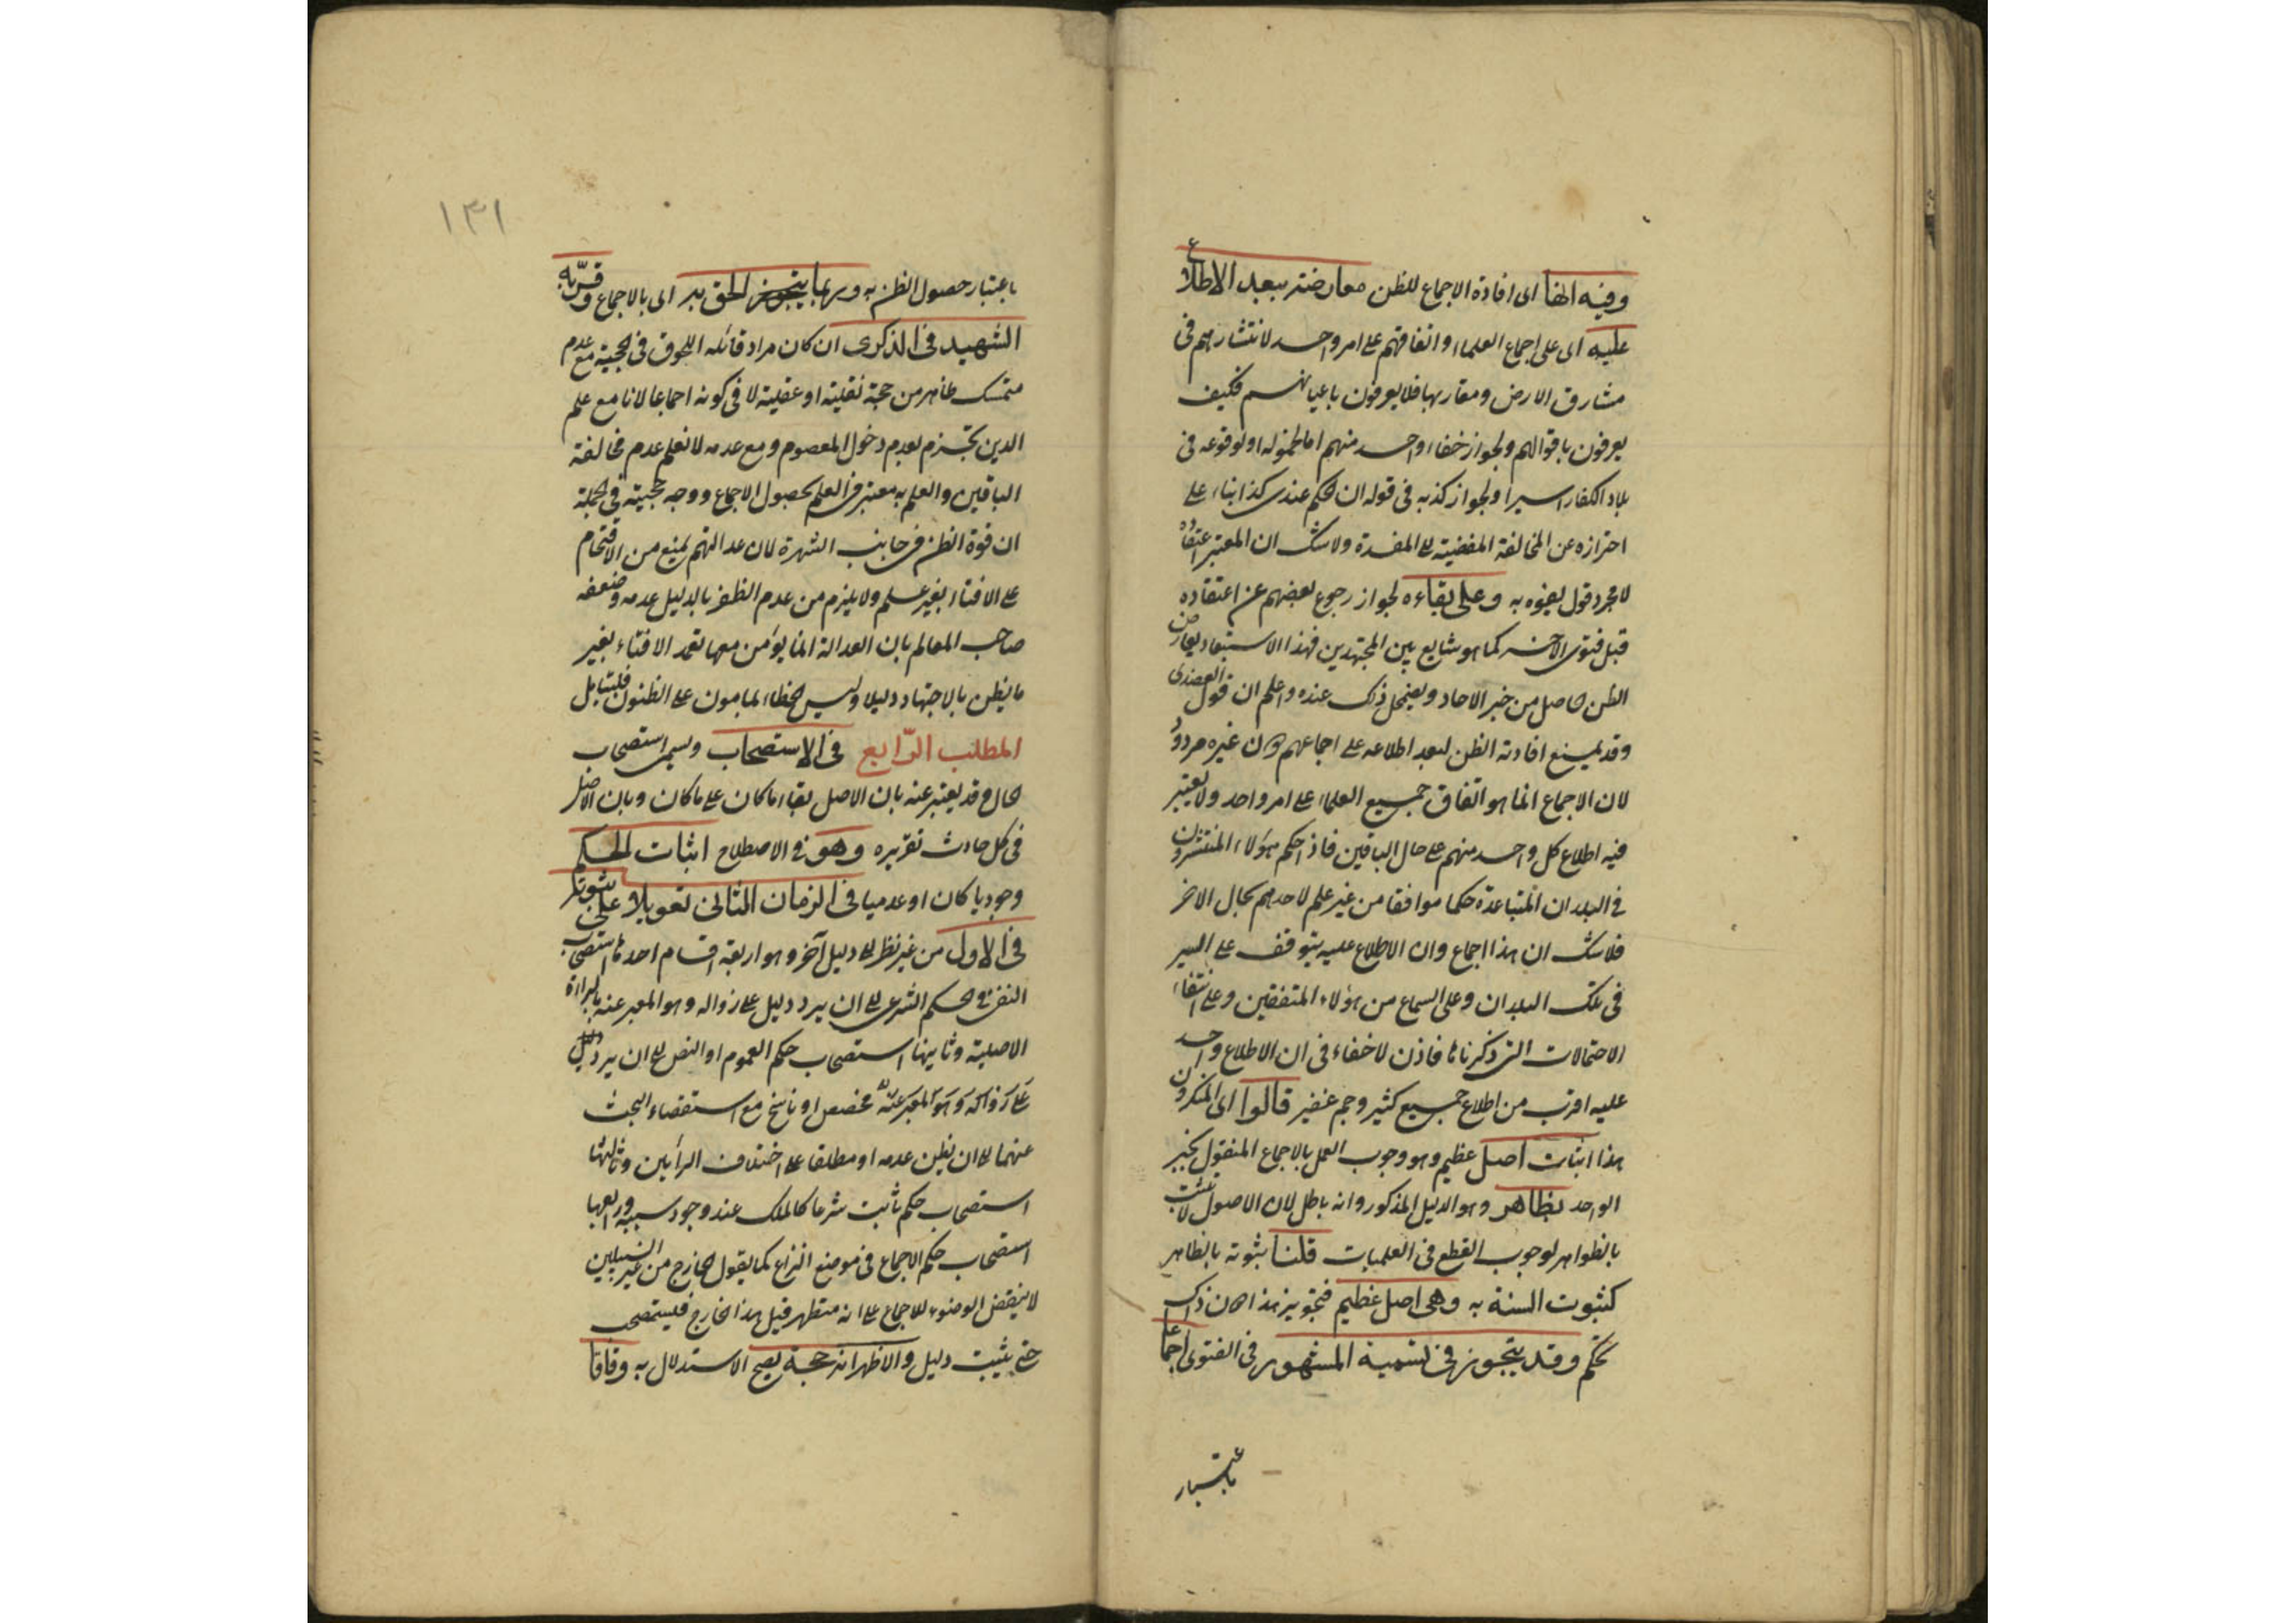 وفيه ايضا اى افادة الاجماع للظن معارضته ببعد الاطلاع
عليه اى على اجماع العلماء واتفاقهم على امر واحد لانتشارهم فى
مشارق الارض ومغاربها فلا يعرفون باعيانهم فكيف
يعرفون باقوالهم ولجواز خفاء واحد منهم اما لخموله او لوقوعه فى
بلاد الكفار اسيرا ولجواز كذبه فى قوله ان الحكم عندى كذا بناء على
احترازه عن المخالفة المفضية الى المفسدة ولا شك ان المعتبر اعتقاده
لا مجرد قول يفوه به وعلى بقاءه لجواز رجوع بعضهم عن اعتقاده
قبل فتوى الاخر كما هو شايع بين المجتهدين فهذا الاستبعاد يعارض
الظن الحاصل من خبر الاحاد ويضمحل ذلك عنده واعلم ان قول العضدى
وقد يمنع افادته الظن لبعد اطلاعه على اجماعهم دون غيره مردود
لان الاجماع انما هو اتفاق جميع العلماء على امر واحد ولا يعتبر
فيه اطلاع كل واحد منهم على حال الباقين فاذا حكم هؤلاء المنتشرون
فى البلدان المتباعدة حكما موافقا من غير علم لاحدهم بحال الاخر
فلا شك ان هذا اجماع وان الاطلاع عليه يتوقف على السير
فى تلك البلدان وعلى السماع من هؤلاء المتفقين وعلى انتفاء
الاحتمالات التى ذكرناها فاذن لا خفاء فى ان الاطلاع واحد
عليه اقرب من اطلاع جميع كثير وجم غفير قالوا اى المنكرون
هذا اثبات اصل عظيم وهو وجوب العمل بالاجماع المنقول بخبر
الواحد بظاهر وهو الدليل المذكور وانه باطل لان الاصول لا تثبت
بالظواهر لوجوب القطع فى العلميات قلنا ثبوته بالظاهر
كثبوت السنة به وهى اصل عظيم فتجويز هذا دون ذاك
تحكم وقد يتجوز فى تسمية المشهور فى الفتوى اجماعا
باعتبار
١٣١
باعتبار حصول الظن به وربما يتجوز الحق به اى بالاجماع وقربه
الشهيد فى الذكرى ان كان مراد قائله اللحوق فى الحجية مع عدم
متمسك ظاهر من حجة نقلية او عقلية لا فى كونه اجماعا لانا مع علم
الدين نجزم بعدم دخول المعصوم ومع عدمه لا نعلم عدم مخالفة
الباقين والعلم به معتبر فى العلم بحصول الاجماع ووجه حجيته فى الجملة
ان قوة الظن فى جانب الشهرة لان عدالتهم يمنع من الاقتحام
على الافتاء بغير علم ولا يلزم من عدم الظفر بالدليل عدمه وضعفه
صاحب المعالم بان العدالة انما يؤمن معها تعمد الافتاء بغير
ما يظن بالاجتهاد دليلا وليس الخطاء بمامون على الظنون فليتامل
المطلب الرابع فى الاستصحاب ويسمى استصحاب
الحال وقد يعتبر عنه بان الاصل بقاء ما كان على ما كان وبان الاصل
فى كل حادث تقريره وهو فى الاصطلاح اثبات الحكم
وجوديا كان او عدميا فى الزمان الثانى تعويلا على ثبوته
فى الاول من غير نظر الى دليل آخر وهو اربعة اقسام احدها استصحاب
النفى فى الحكم الشرعى الى ان يرد دليل على زواله وهو المعبر عنه بالبراءة
الاصلية وثانيها استصحاب حكم العموم او النص الى ان يرد دليل
على زواله وهو المعبر عنه مخصص او ناسخ مع استقصاء البحث
عنهما الى ان يظن عدمه او مطلقا على اختلاف الرأيين وثالثها
استصحاب حكم ثابت شرعا كالملك عند وجود سببه ورابعها
استصحاب حكم الاجماع فى موضع النزاع كما يقول الخارج من غير السبيلين
لا ينقض الوضوء للاجماع على انه متطهر قبل هذا الخارج فيستصحب
حتى يثبت دليل والاظهر انه حجة يصح الاستدلال به وفاقا